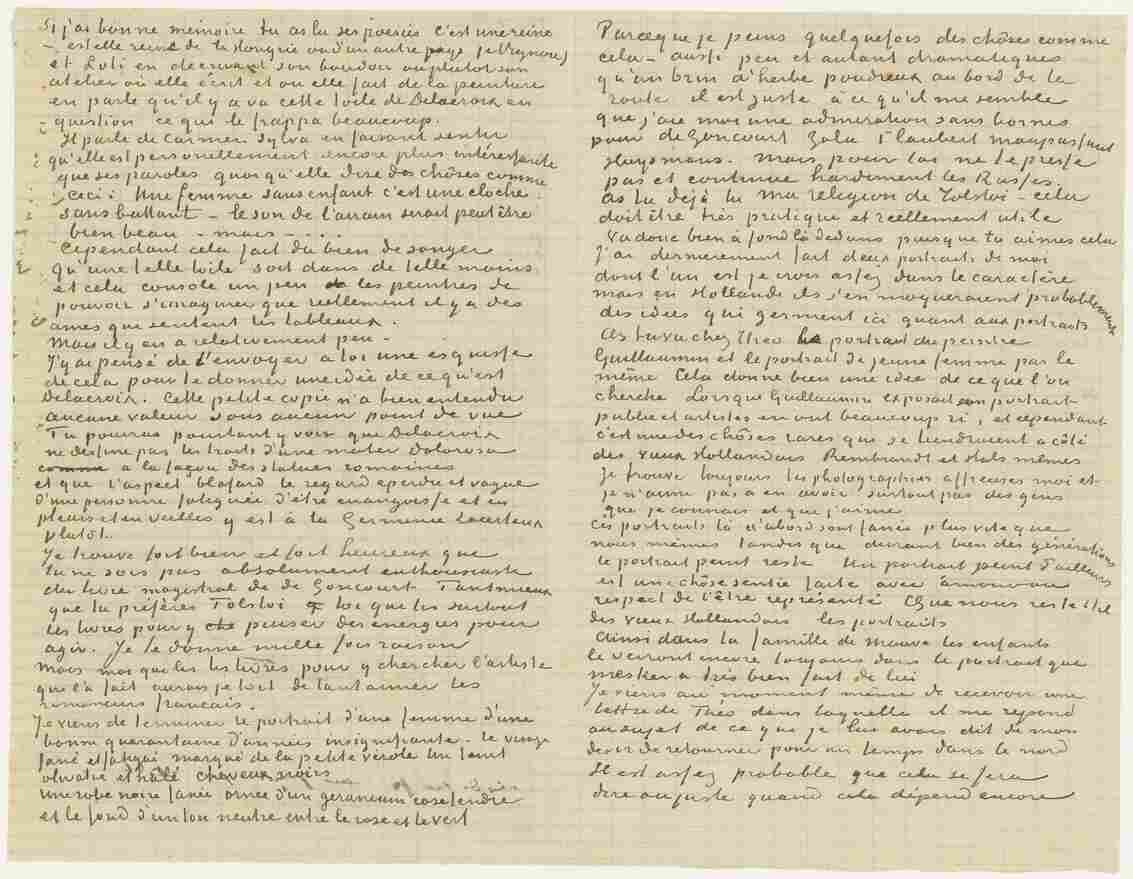 Si j'ai bonne mémoire tu as lu ses poesies c'est une reine
– est elle reine de la Hongrie ou d'un autre pays je l'ignore)
et Loti en décrivant son boudoir ou plutot son
atelier où elle écrit et ou elle fait de la peinture
en parle qu'il y a vu cette toile de Delacroix en
question ce qui le frappa beaucoup.
Il parle de Carmen Sylva en faisant sentir
qu'elle est personellement encore plus intéressante
que ses paroles quoiqu'elle dise des chôses comme
ceci : Une femme sans enfant c'est une cloche
sans battant – le son de l'airain serait peut être
bien beau – mais – . . .
Cependant cela fait du bien de songer
qu'une telle toile soit dans de telle mains
et cela console un peu les peintres de
pouvoir s'imaginer que reellement il y a des
ames qui sentent les tableaux.
Mais il y en a relativement peu –
J'y ai pensé de t'envoyer à toi une esquisse
de cela pour te donner une idée de ce qu'est
Delacroix. Cette petite copie n'a bien entendu
aucune valeur sous aucun point de vue
Tu pourras pourtant y voir que Delacroix
ne dessine pas les traits d'une mater Dolorosa
comme à la façon des statues romaines
et que l'aspect blafard le regard eperdu et vague
d'une personne fatiguée d'être en angoisse et en
pleurs et en veilles y est à la Germinie Lacerteux
plutôt.
Je trouve fort bien et fort heureux que
tu ne sois pas absolument enthousiaste
du livre magistral de de Goncourt. Tant mieux
que tu préfères Tolstoï toi que lis surtout
les livres pour y puiser des énergies pour
agir. Je te donne mille fois raison
Mais moi qui lis les livres pour y chercher l'artiste
qui l'a fait aurais je tort de tant aimer les
romanciers francais.
Je viens de terminer le portrait d'une femme d'une
bonne quarantaine d'années insignifiante. Le visage
fané et fatigué marqué de la petite vérole Un teint
olivatre et hâlé cheveux noirs
une robe noire fanée ornée d'un geranium rose tendre
et le fond d'un ton neutre entre le rose et le vert
Parceque je peins quelquefois des chôses comme
cela – aussi peu et autant dramatiques
qu'un brin d'herbe poudreux au bord de la
route il est juste à ce qu'il me semble
que j'aie moi une admiration sans bornes
pour de Goncourt Zola Flaubert Maupassant
Huysmans. Mais pour toi ne te presse
pas et continue hardiment les Russes.
As tu déjà lu ma religion de Tolstoï – cela
doit être très pratique et reellement utile
Va donc bien à fond là dedans puisque tu aimes cela
J'ai dernièrement fait deux portraits de moi
dont l'un est je crois assez dans le caractère
mais en Hollande ils s'en moqueraient probablement
des idées qui germent ici quant aux portraits
As tu vu chez Theo le portrait du peintre
Guillaumin et le portrait de jeune femme par le
même Cela donne bien une idée de ce que l'on
cherche Lorsque Guillaumin exposait son portrait
public et artistes en ont beaucoup ri, et cependant
c'est une des chôses rares que se tiendraient à côté
des vieux Hollandais Rembrandt et Hals mêmes
Je trouve toujours les photographies affreuses moi et
je n'aime pas à en avoir surtout pas des gens
que je connais et que j'aime
Ces portraits là d'abord sont fanés plus vite que
nous mêmes tandis que durant bien des générations
le portrait peint reste Un portrait peint d'ailleurs
est une chôse sentie faite avec amour ou
respect de l'être représenté Que nous reste t'il
des vieux Hollandais les portraits
Ainsi dans la famille de Mauve les enfants
le verront encore toujours dans le portrait que
Mesker a très bien fait de lui
Je viens au moment même de recevoir une
lettre de Théo dans laquelle il me repond
au sujet de ce que je lui avais dit de mon
desir de retourner pour un temps dans le nord
Il est assez probable que cela se fera
dire au juste quand cela dépend encore